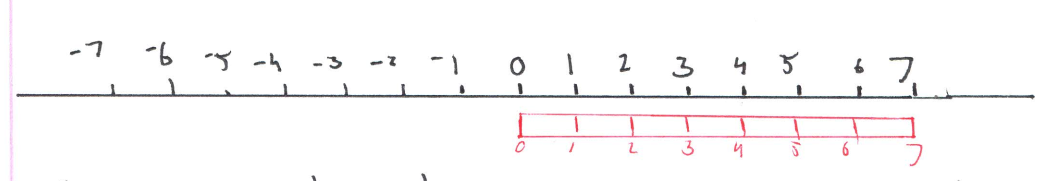 -7 -6 -5 -4 -3 -2 -1 0 1 2 3 4 5 6 7
0 1 2 3 4 5 6 7